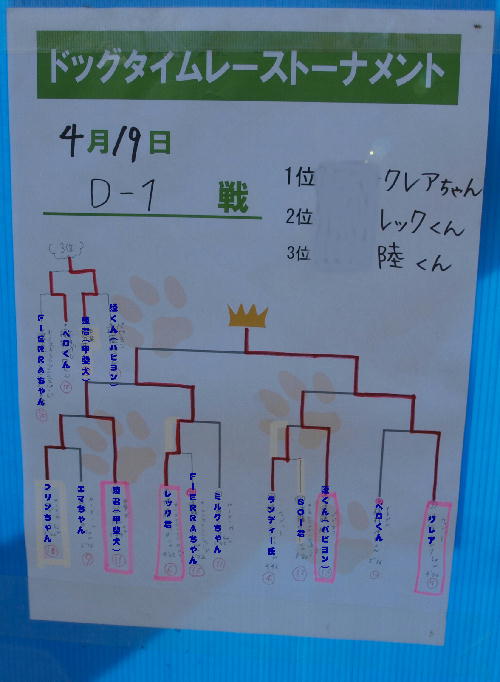 ドッグタイムレーストーナメント
4月19日
D-1 戦
1位 クレアちゃん
2位 レックくん
3位 陸くん
3位
FIERRAちゃん
ベロくん
陸君(甲斐犬)
陸くん(パピヨン)
プリンちゃん
エマちゃん
陸君(甲斐犬)
レック君
FIERRAちゃん
ミルクちゃん
ランディー氏
SOI君
陸くん(パピヨン)
ベロくん
クレア